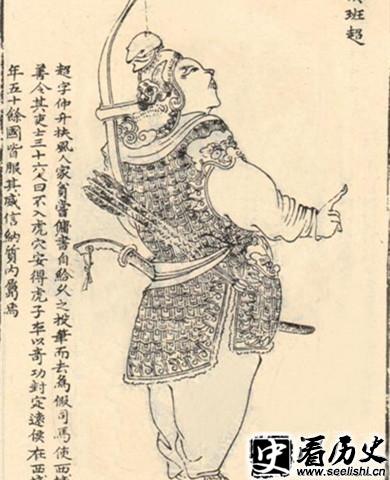 班超
超字仲升扶風人家貧嘗傭書自給久之投筆而去為假司馬使西域
善令其吏士三十六人曰不入虎穴安得虎子卒以奇功封定遠侯在西域
年五十餘國皆服其威信納質內屬焉
史看历史
www.seelishi.cn